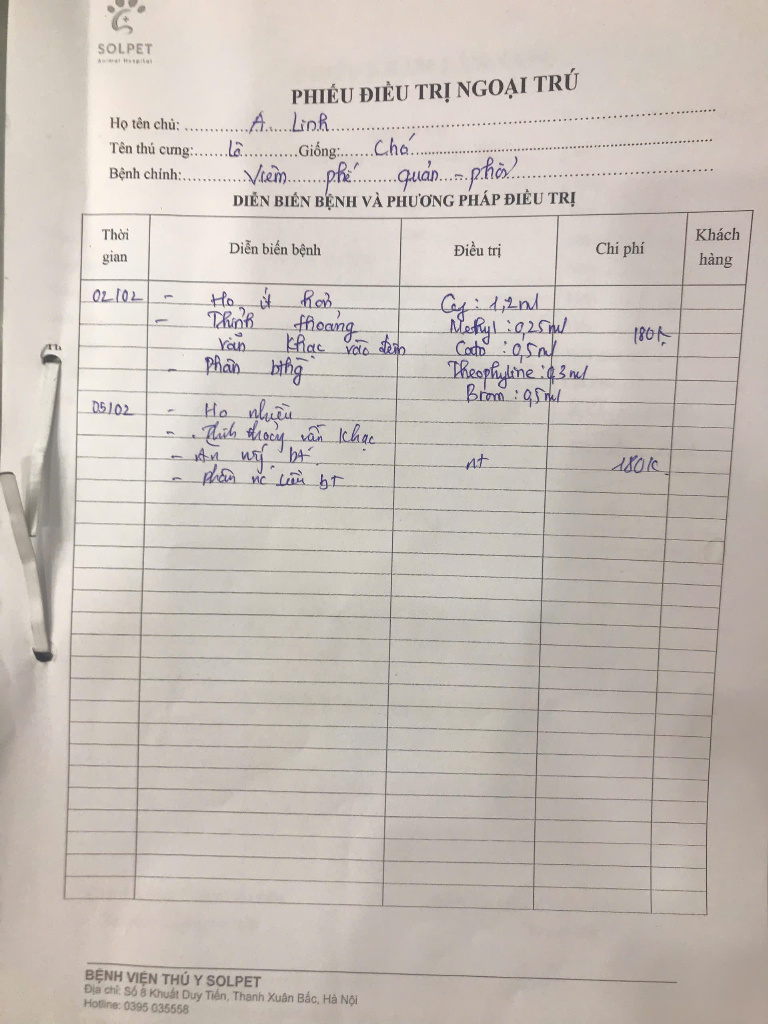 SOLPET
Animal Hospital
PHIẾU ĐIỀU TRỊ NGOẠI TRÚ
Họ tên chủ: A. Linh
Tên thú cưng: Lô Giống: Chó
Bệnh chính: Viêm phế quản - phổi
DIỄN BIẾN BỆNH VÀ PHƯƠNG PHÁP ĐIỀU TRỊ
Thời gian Diễn biến bệnh Điều trị Chi phí Khách hàng
02/02 - Ho ít hơn Cef: 1,2ml
- Thỉnh thoảng Methyl: 0,25ml 180K
vẫn khạc vào đêm Cato: 0,5ml
- Phân bthg Theophyline: 0,3ml
Brom: 0,5ml
05/02 - Ho nhiều
- Thỉnh thoảng vẫn khạc
- Ăn bt nt 180K
- phân nc tiểu bt
BỆNH VIỆN THÚ Y SOLPET
Địa chỉ: Số 8 Khuất Duy Tiến, Thanh Xuân Bắc, Hà Nội
Hotline: 0395 035558